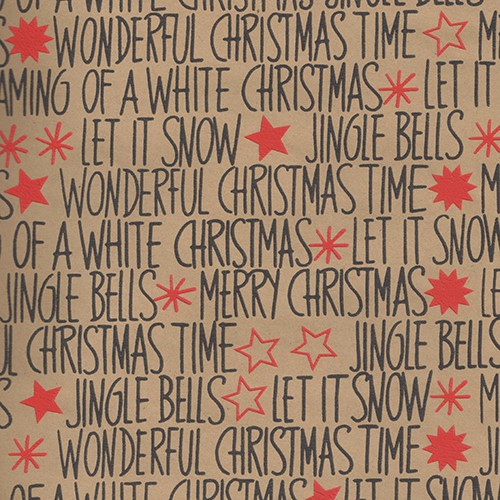 OF A WHITE CHRISTMAS JINGLE BELLS
S WONDERFUL CHRISTMAS TIME ME
AMING OF A WHITE CHRISTMAS LET IT
LET IT SNOW JINGLE BELLS
S WONDERFUL CHRISTMAS TIME
OF A WHITE CHRISTMAS LET IT SNOW
JINGLE BELLS MERRY CHRISTMAS LE
UL CHRISTMAS TIME JINGLE BELLS
S JINGLE BELLS LET IT SNOW M
WONDERFUL CHRISTMAS TIME J
OF A WHITE CHRISTMAS LET IT SNOW